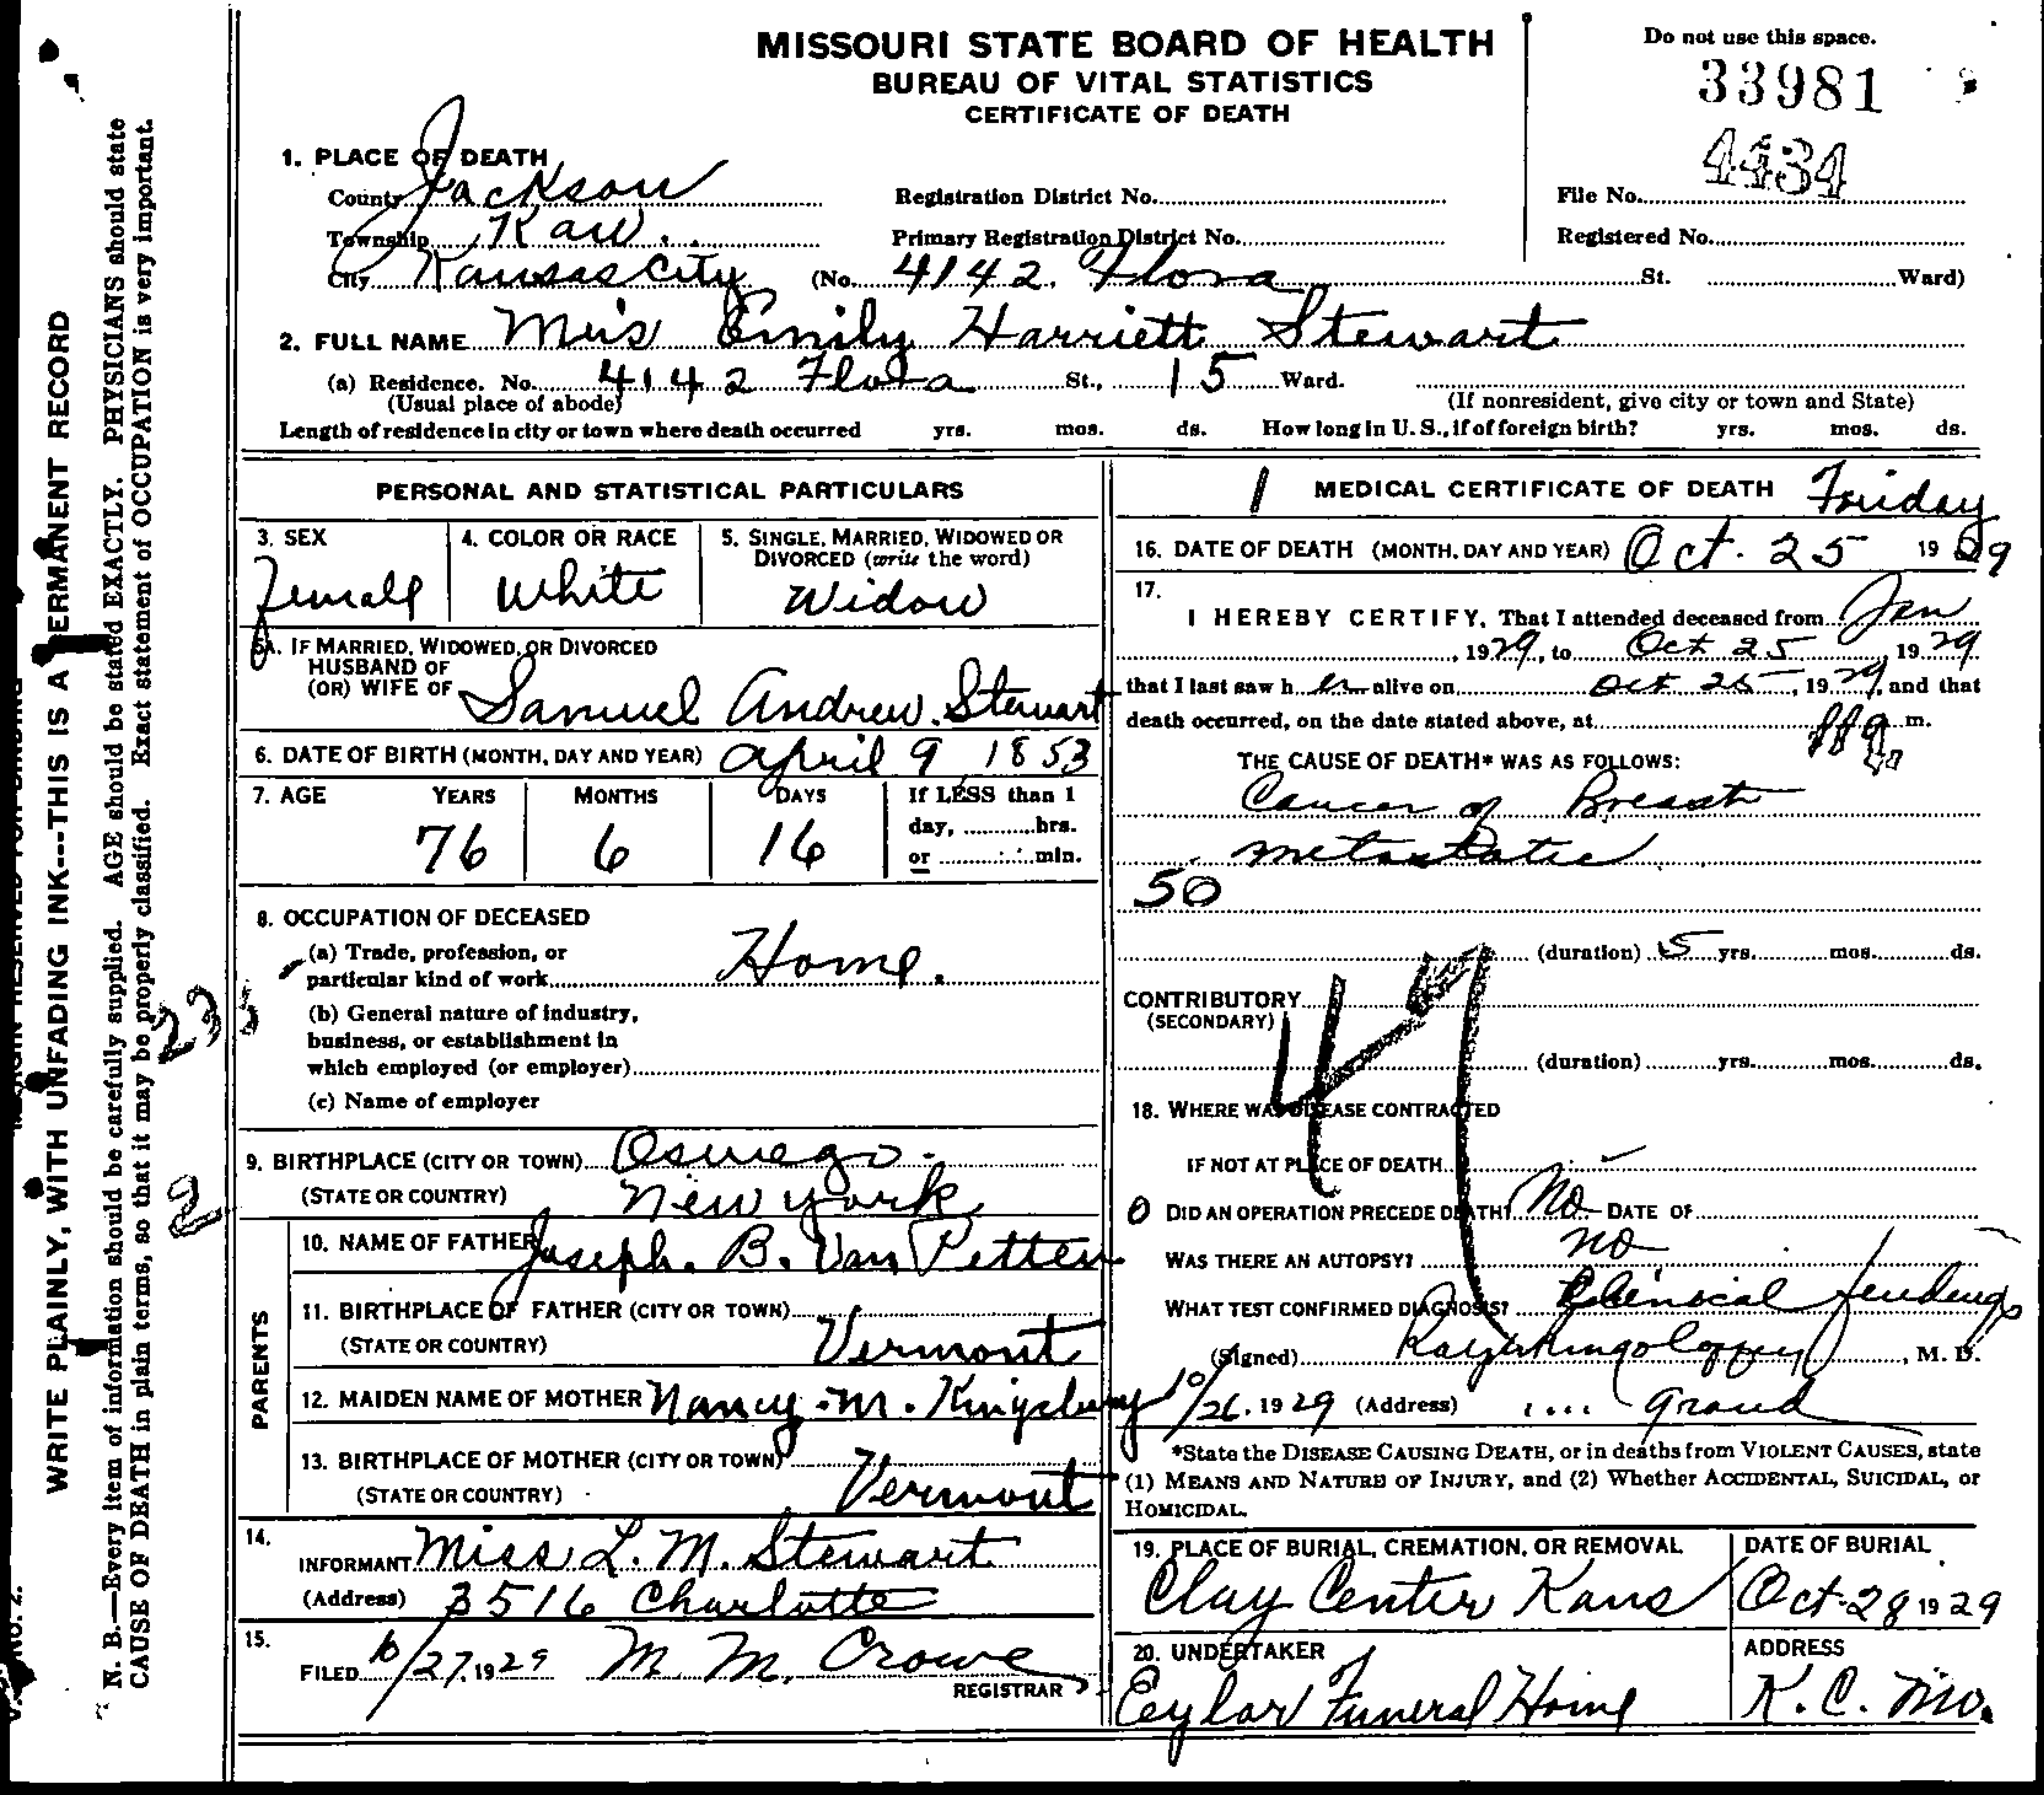 MISSOURI STATE BOARD OF HEALTH
BUREAU OF VITAL STATISTICS
CERTIFICATE OF DEATH
Do not use this space.
33981
4434
1. PLACE OF DEATH
County Jackson Registration District No. File No.
Township Kaw Primary Registration District No. Registered No.
City Kansas City (No. 4142 Flora St. Ward)
2. FULL NAME Mrs Emily Harriett Stewart
(a) Residence. No. 4142 Flora St., 15 Ward.
(Usual place of abode) (If nonresident, give city or town and State)
Length of residence in city or town where death occurred yrs. mos. ds. How long in U. S., if of foreign birth? yrs. mos. ds.
PERSONAL AND STATISTICAL PARTICULARS
3. SEX 4. COLOR OR RACE 5. SINGLE, MARRIED, WIDOWED OR DIVORCED (write the word)
Female White Widow
5A. IF MARRIED, WIDOWED, OR DIVORCED
HUSBAND OF
(OR) WIFE OF Samuel Andrew Stewart
6. DATE OF BIRTH (MONTH, DAY AND YEAR) April 9 1853
7. AGE YEARS MONTHS DAYS If LESS than 1
day, hrs.
76 6 16 or min.
8. OCCUPATION OF DECEASED
(a) Trade, profession, or
particular kind of work Home.
(b) General nature of industry,
business, or establishment in
which employed (or employer)
(c) Name of employer
9. BIRTHPLACE (CITY OR TOWN) Oswego
(STATE OR COUNTRY) New York
PARENTS
10. NAME OF FATHER Joseph. B. Van Petten
11. BIRTHPLACE OF FATHER (CITY OR TOWN)
(STATE OR COUNTRY) Vermont
12. MAIDEN NAME OF MOTHER Nancy. M. Kingsbury
13. BIRTHPLACE OF MOTHER (CITY OR TOWN)
(STATE OR COUNTRY) Vermont
14.
INFORMANT Miss L. M. Stewart
(Address) 3516 Charlotte
15.
FILED 10/27, 1929 M. M. Crowe
REGISTRAR
1 MEDICAL CERTIFICATE OF DEATH Friday
16. DATE OF DEATH (MONTH, DAY AND YEAR) Oct. 25 1929
17.
I HEREBY CERTIFY, That I attended deceased from Jan
, 1929, to Oct 25, 1929
that I last saw her alive on Oct 25, 1929, and that
death occurred, on the date stated above, at m.
THE CAUSE OF DEATH* WAS AS FOLLOWS:
Cancer of Breast
metastatic
50
(duration) 5 yrs. mos. ds.
CONTRIBUTORY
(SECONDARY)
(duration) yrs. mos. ds.
18. WHERE WAS DISEASE CONTRACTED
IF NOT AT PLACE OF DEATH
0 DID AN OPERATION PRECEDE DEATH? No DATE OF
WAS THERE AN AUTOPSY? no
WHAT TEST CONFIRMED DIAGNOSIS? Clinical findings
(Signed) , M. D.
10/26, 1929 (Address) Grand
*State the DISEASE CAUSING DEATH, or in deaths from VIOLENT CAUSES, state
(1) MEANS AND NATURE OF INJURY, and (2) Whether ACCIDENTAL, SUICIDAL, or
HOMICIDAL.
19. PLACE OF BURIAL, CREMATION, OR REMOVAL DATE OF BURIAL
Clay Center Kans Oct. 28 1929
20. UNDERTAKER ADDRESS
Eylar Funeral Home K. C. Mo.
WRITE PLAINLY, WITH UNFADING INK---THIS IS A PERMANENT RECORD
N. B.—Every item of information should be carefully supplied. AGE should be stated EXACTLY. PHYSICIANS should state
CAUSE OF DEATH in plain terms, so that it may be properly classified. Exact statement of OCCUPATION is very important.
2